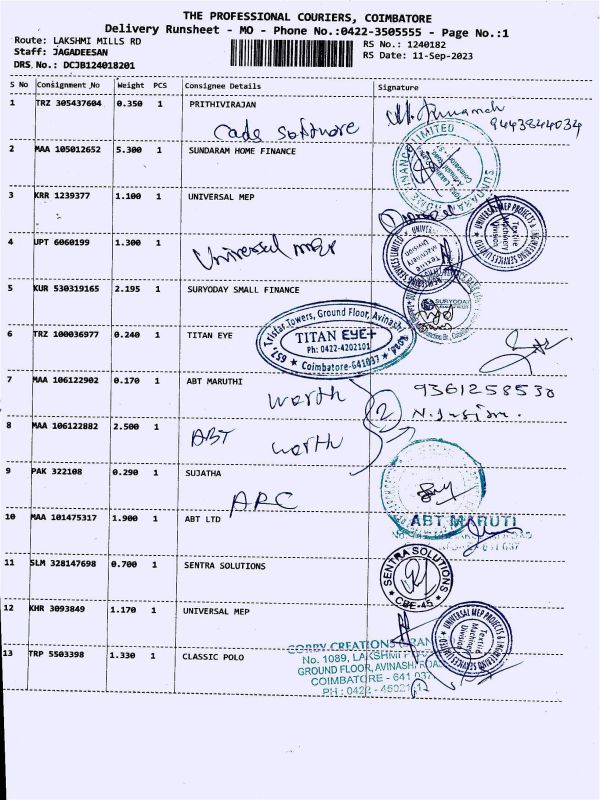 THE PROFESSIONAL COURIERS, COIMBATORE
Delivery Runsheet - MO - Phone No.:0422-3505555 - Page No.:1
Route: LAKSHMI MILLS RD
RS No.: 1240182
Staff: JAGADEESAN
RS Date: 11-Sep-2023
DRS No.: DCJB124018201
S No Consignment No Weight PCS Consignee Details Signature
1 TRZ 305437604 0.350 1 PRITHIVIRAJAN
9443844034
Cads software
2 MAA 105012652 5.300 1 SUNDARAM HOME FINANCE
3 KRR 1239377 1.100 1 UNIVERSAL MEP
UNIVERSAL MEP PROJECTS & ENGINEERING SERVICES LIMITED
Textile Machinery Division
4 UPT 6060199 1.300 1
Universal mep
Textile Machinery Division
5 KUR 530319165 2.195 1 SURYODAY SMALL FINANCE
SURYODAY
Tristar Towers, Ground Floor, Avinashi
6 TRZ 100036977 0.240 1 TITAN EYE
TITAN EYE+
Ph: 0422-4202101
Coimbatore-641037
7 MAA 106122902 0.170 1 ABT MARUTHI
worth
9361258530
2
8 MAA 106122882 2.500 1
ABT worth
9 PAK 322108 0.290 1 SUJATHA
ARC
10 MAA 101475317 1.900 1 ABT LTD
ABT MARUTI
11 SLM 328147698 0.700 1 SENTRA SOLUTIONS
SENTRA SOLUTIONS
CBE-45
12 KHR 3093849 1.170 1 UNIVERSAL MEP
UNIVERSAL MEP PROJECTS & ENGINEERING SERVICES LIMITED
Textile Machinery Division
13 TRP 5503398 1.330 1 CLASSIC POLO
CREATIONS
No. 1089, LAKSHMI
GROUND FLOOR, AVINASHI ROAD
COIMBATORE - 641 037
PH : 0422 -